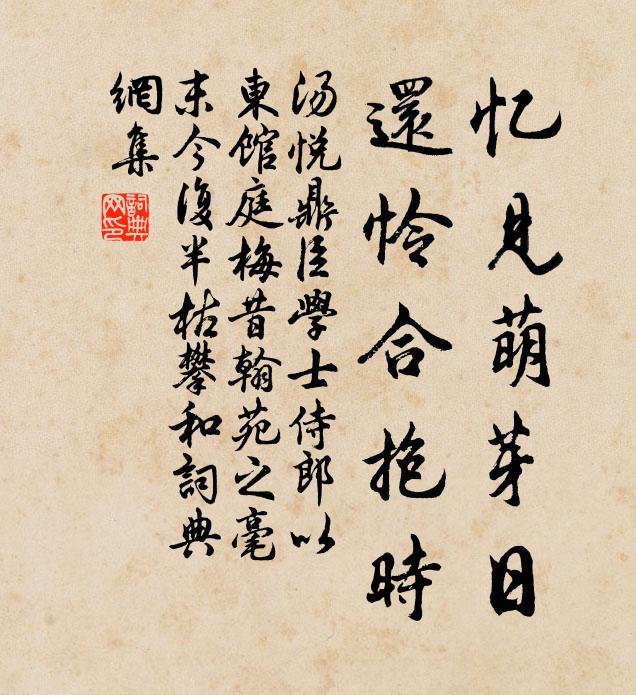 忆見萌芽日
還怜合抱時
汤悅鼎臣學士侍郎以
東館庭梅昔翰苑之毫
末今復半枯攀和詞典
網集
詞典
网印